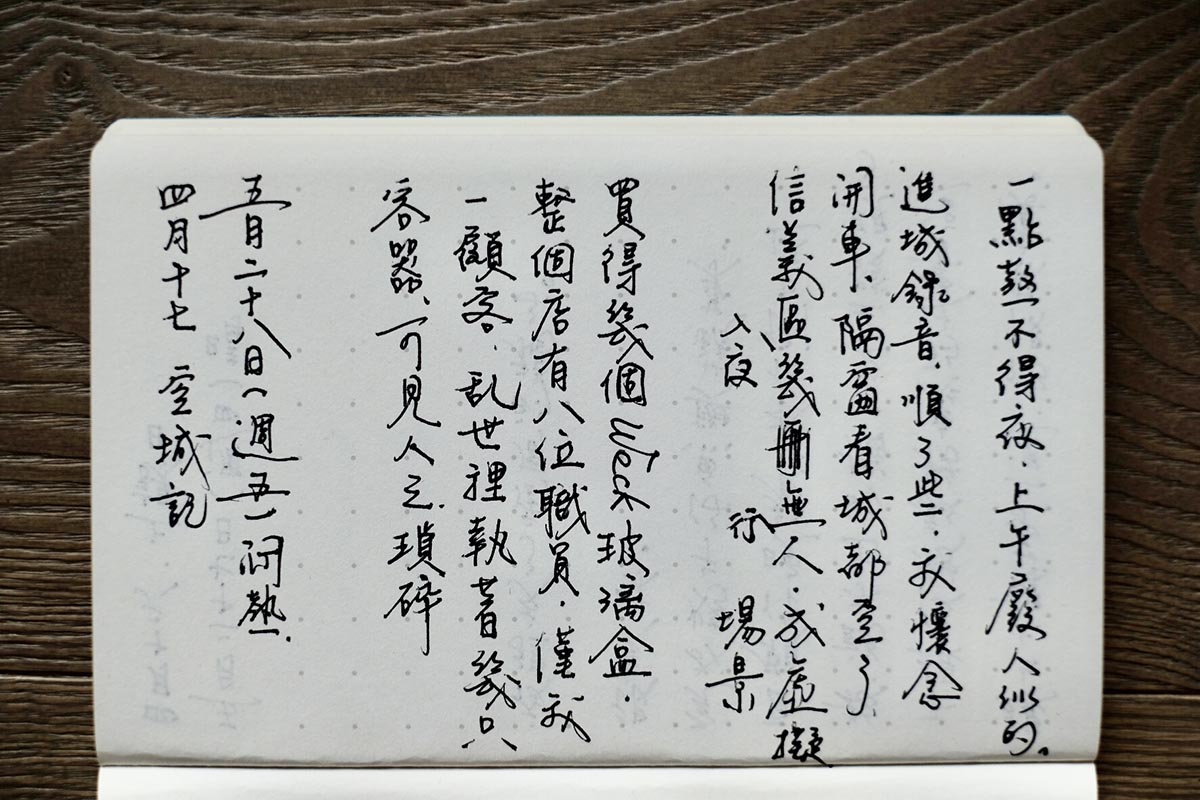 一點熬不得夜.上午廢人似的.
進城錄音.順了些.我懷念
開車、隔窗看城都空了.
信義區幾無人.成虛擬
入夜 行 場景
買得幾個Weck玻璃盒.
整個店有八位職員.僅我
一顧客.乱世裡執著幾只
容器、可見人之瑣碎
五月二十八日(週五)悶熱.
四月十七 空城記